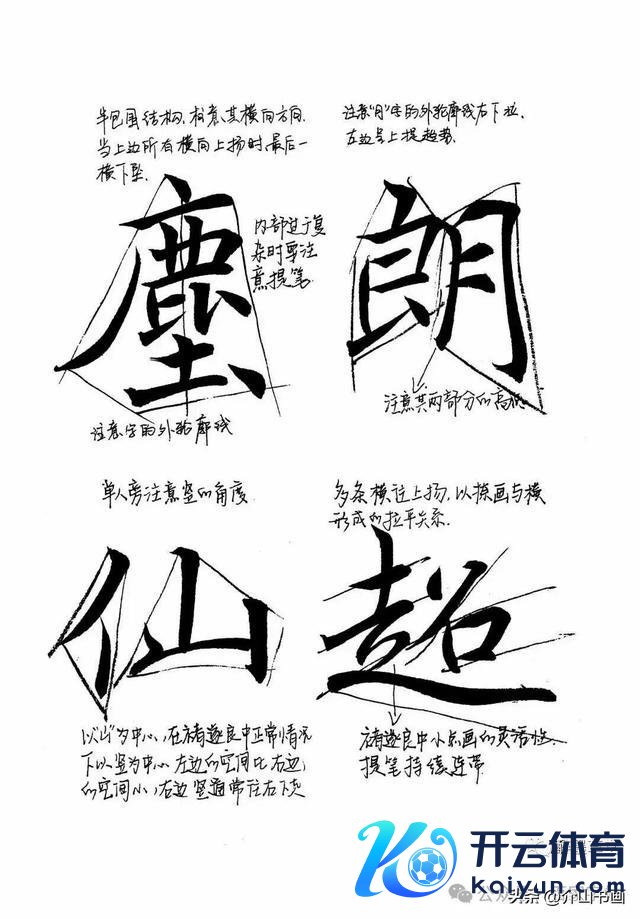 半包围结构,注意其横向方向.
当上边所有横向上扬时,最后一
横下坠.
塵
内部过于复
杂时要注
意提笔.
注意字的外轮廓线
注意"月"字的外轮廓线右下拉,
左边呈上提趋势.
朗
注意其两部分的高低
单人旁注意竖的角度.
仙
以"山"为中心,在褚遂良中正常情况
下以竖为中心,左边的空间比右边
的空间小,右边竖通常往右下
多条横往上扬,以捺画与横
形成的拉平关系.
超
褚遂良中小点画的灵活性.
提笔持续连带
开云体育
kaiyun.com
公众
头条@介山书画